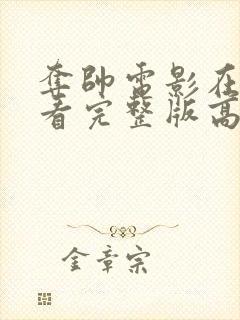 奪帥電影在
看完整版高
金章宗